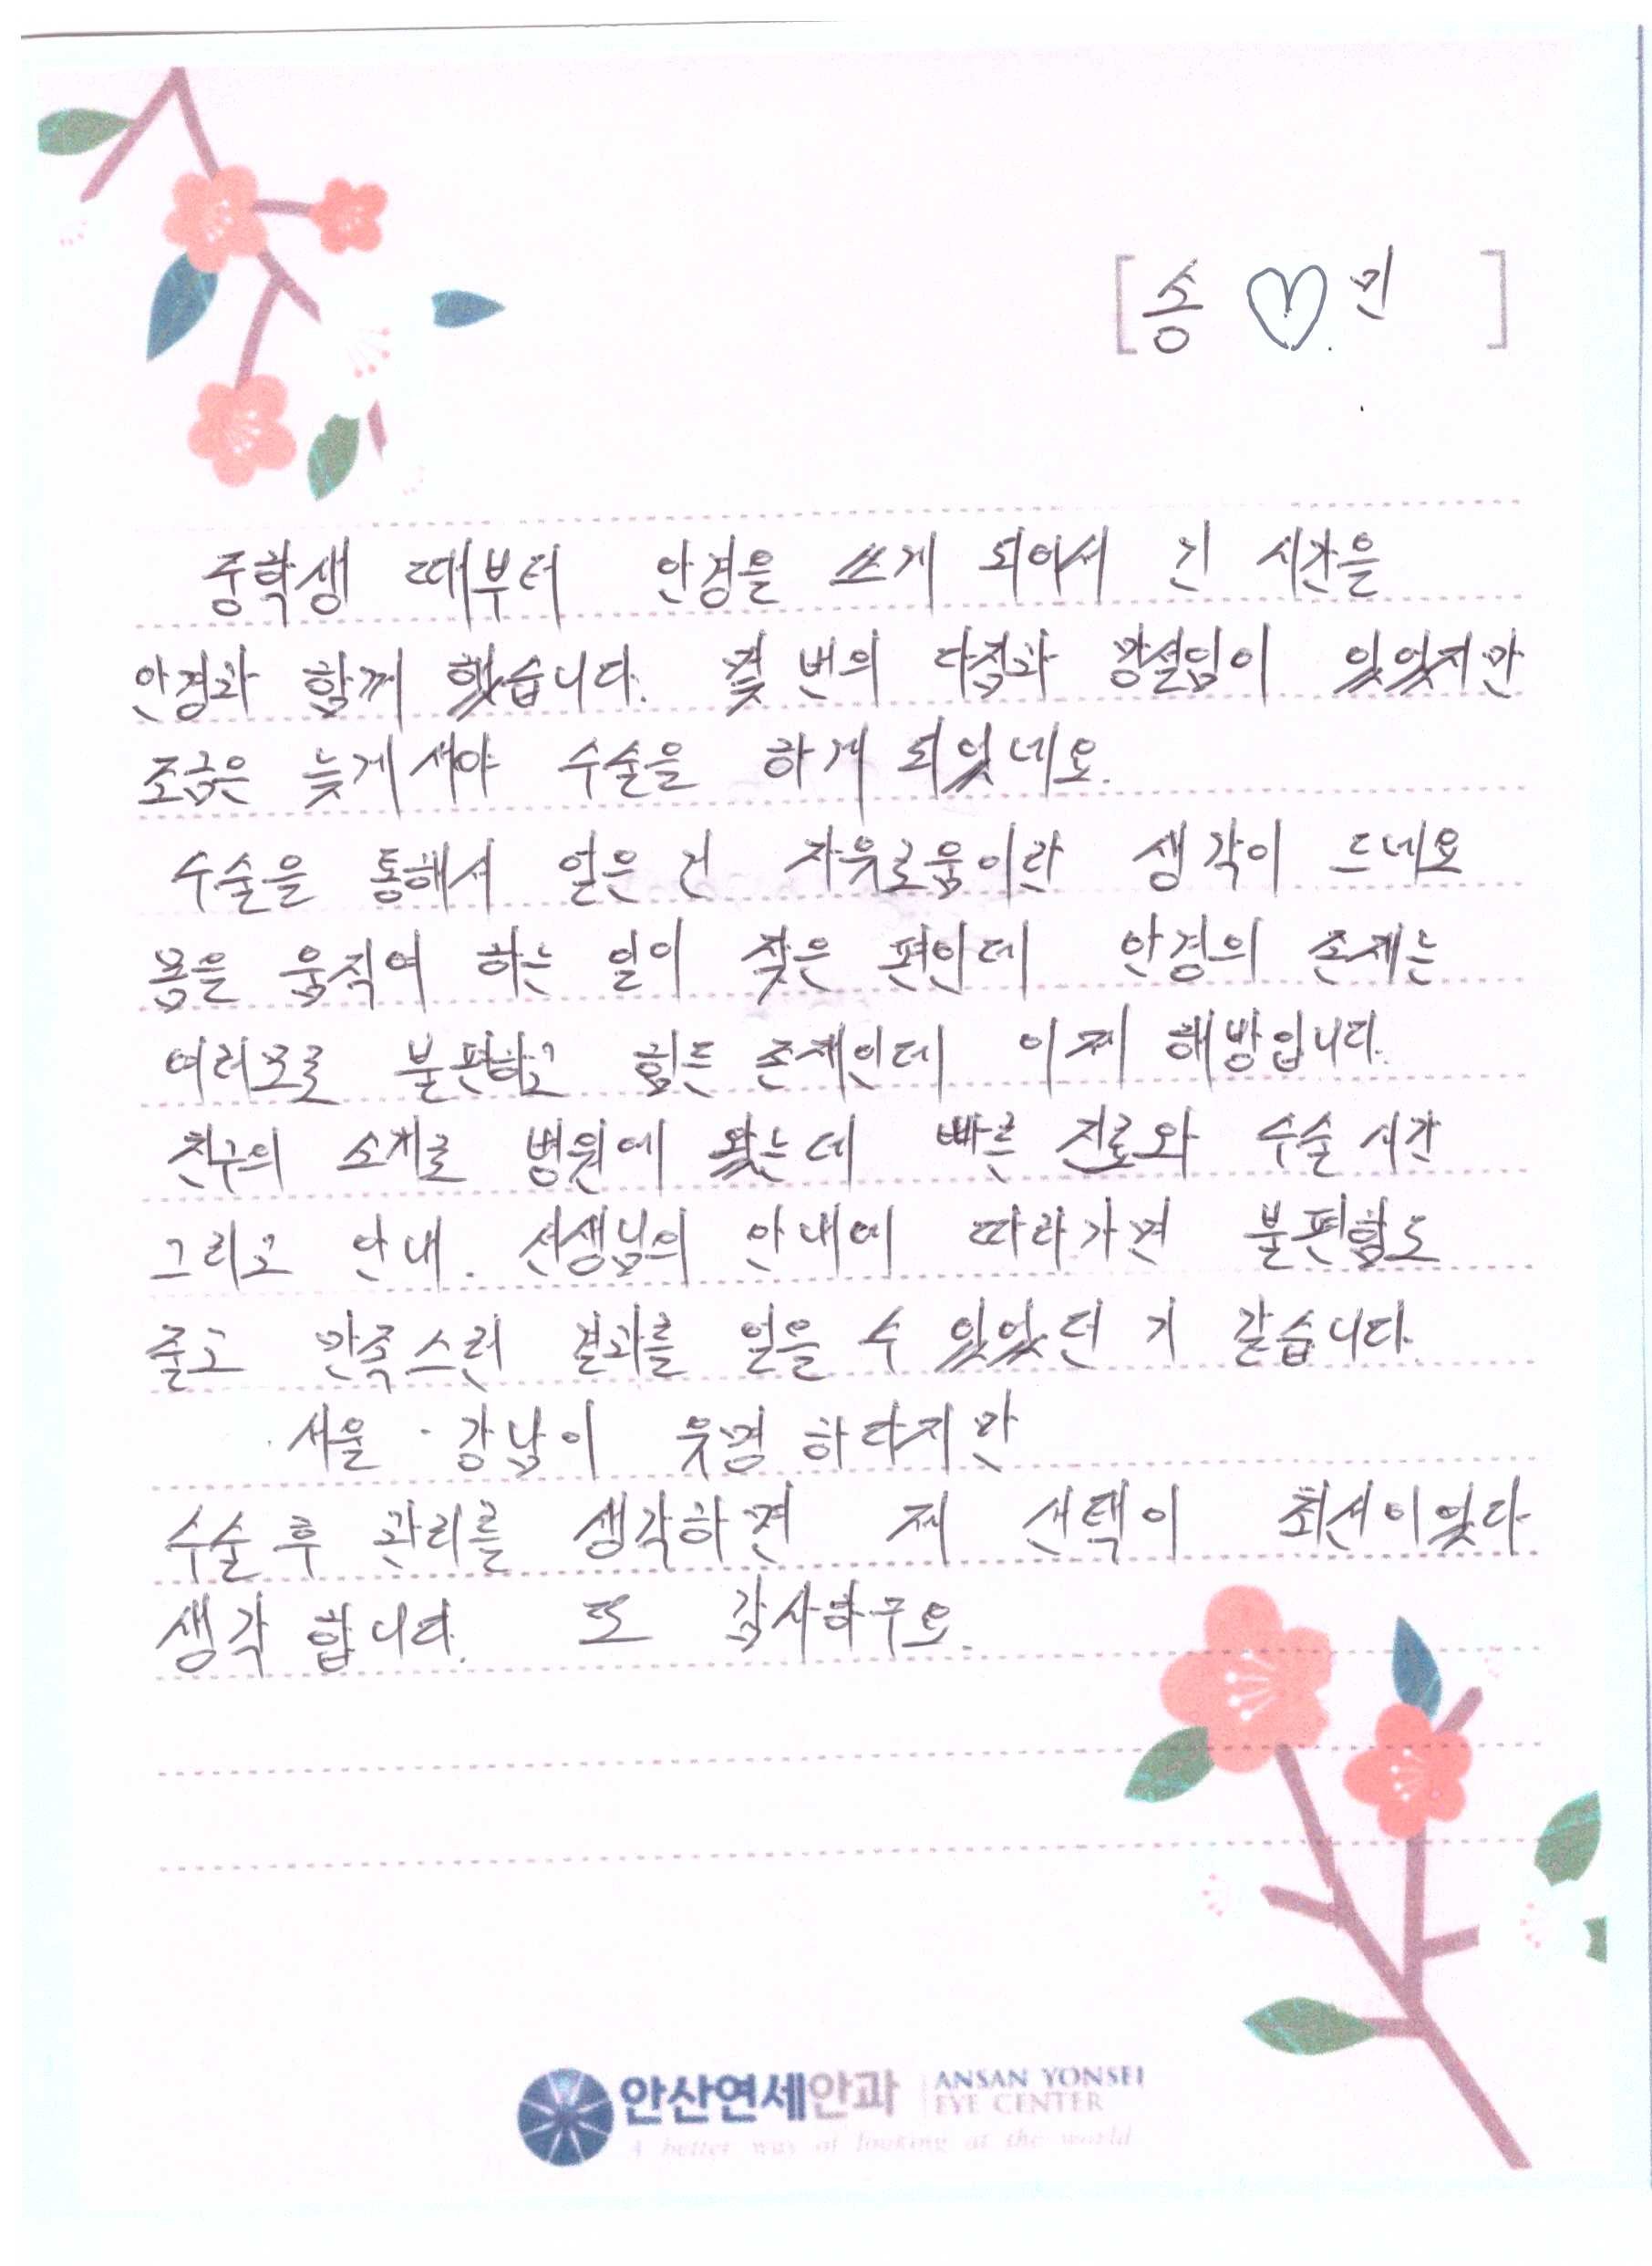 [송 ♡ 민]
중학생 때부터 안경을 쓰게 되어서 긴 시간을
안경과 함께 했습니다. 몇 번의 다짐과 망설임이 있었지만
조금은 늦게서야 수술을 하게 되었네요.
수술을 통해서 얻은 건 자유로움이란 생각이 드네요
몸을 움직여 하는 일이 잦은 편인데 안경의 존재는
여러모로 불편하고 힘든 존재인데 이제 해방입니다.
친구의 소개로 병원에 왔는데 빠른 진료와 수술 시간
그리고 안내. 선생님의 안내에 따라가면 불편함도
줄고 만족스런 결과를 얻을 수 있었던 거 같습니다.
서울·강남이 유명 하다지만
수술 후 관리를 생각하면 제 선택이 최선이었다
생각 합니다. 또 감사하구요.
안산연세안과 ANSAN YONSEI
EYE CENTER
A better way of looking at the world